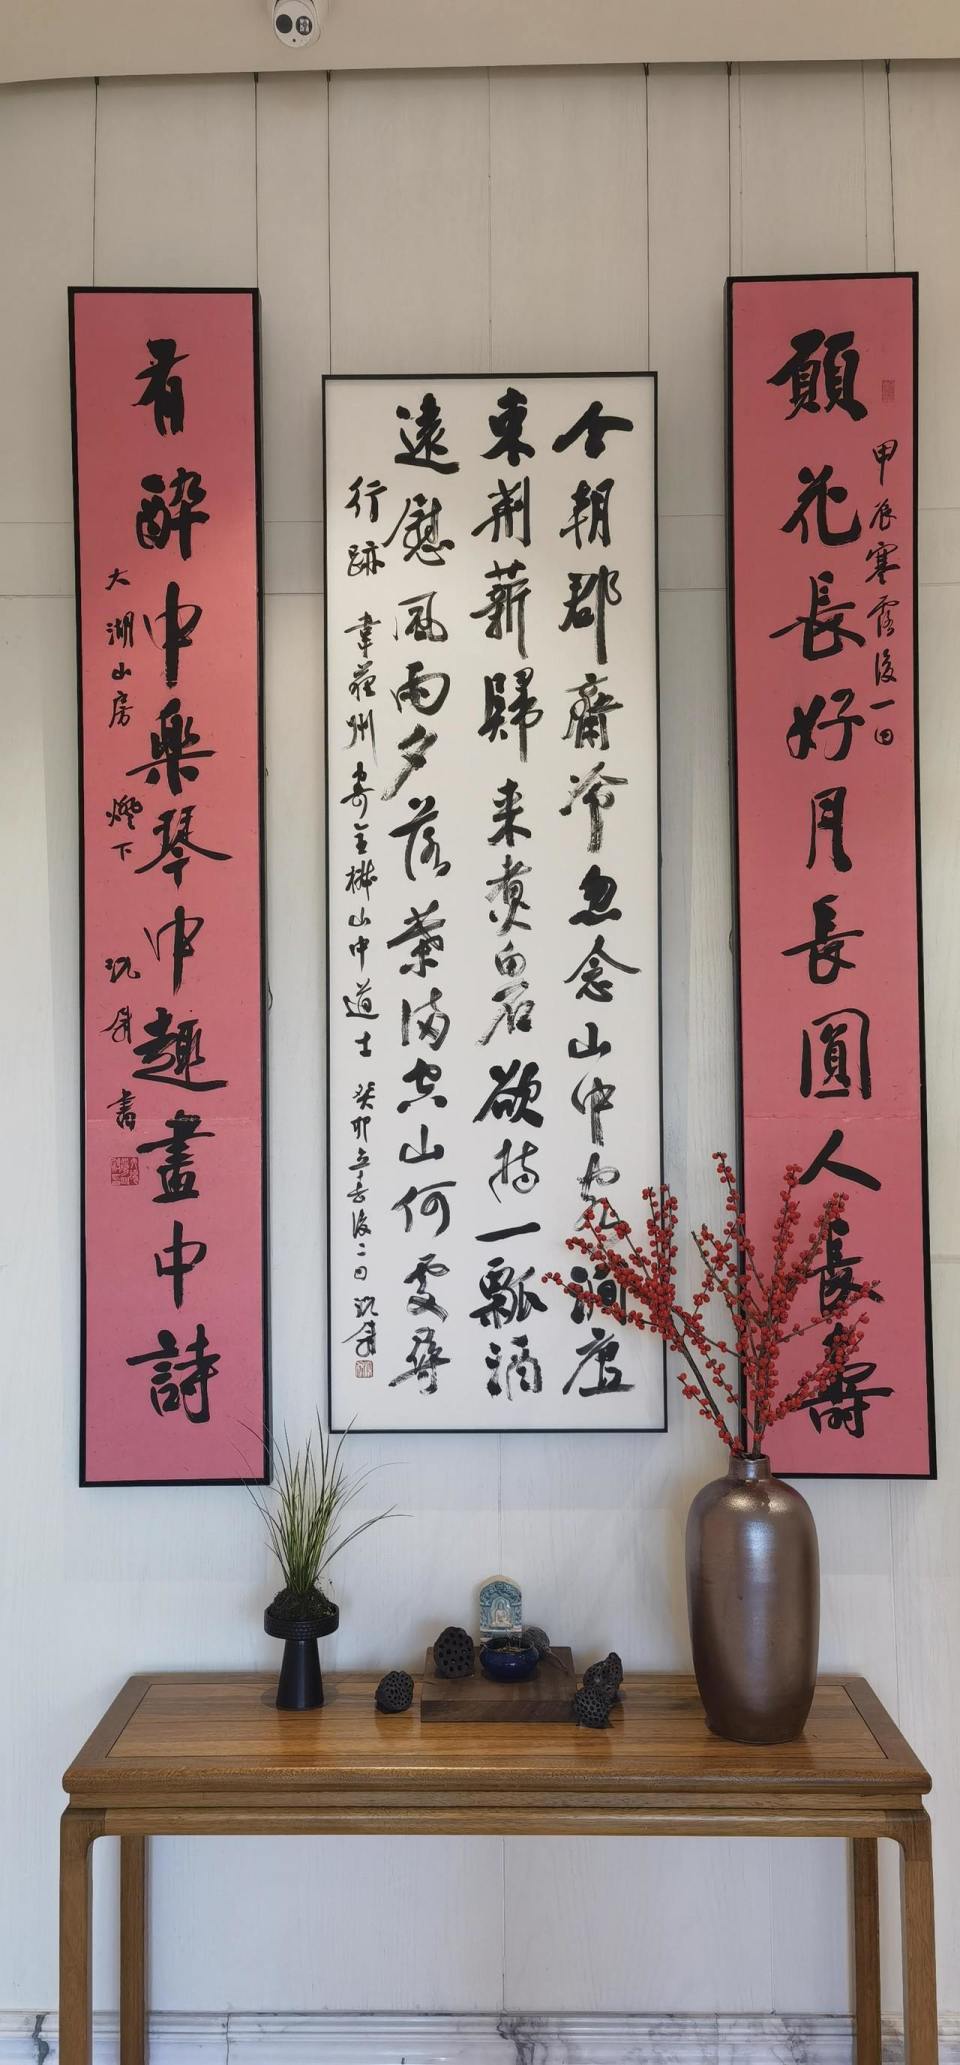 願花長好月長圓人長壽
甲辰寒露後一日
今朝郡齋冷忽念山中客澗底
束荆薪歸来煮白石欲持一瓢酒
遠慰風雨夕落葉滿空山何處尋
行跡 韋蘇州寄全椒山中道士 癸卯立春後二日
有酔中樂琴中趣畫中詩
大湖山房 燈下 書